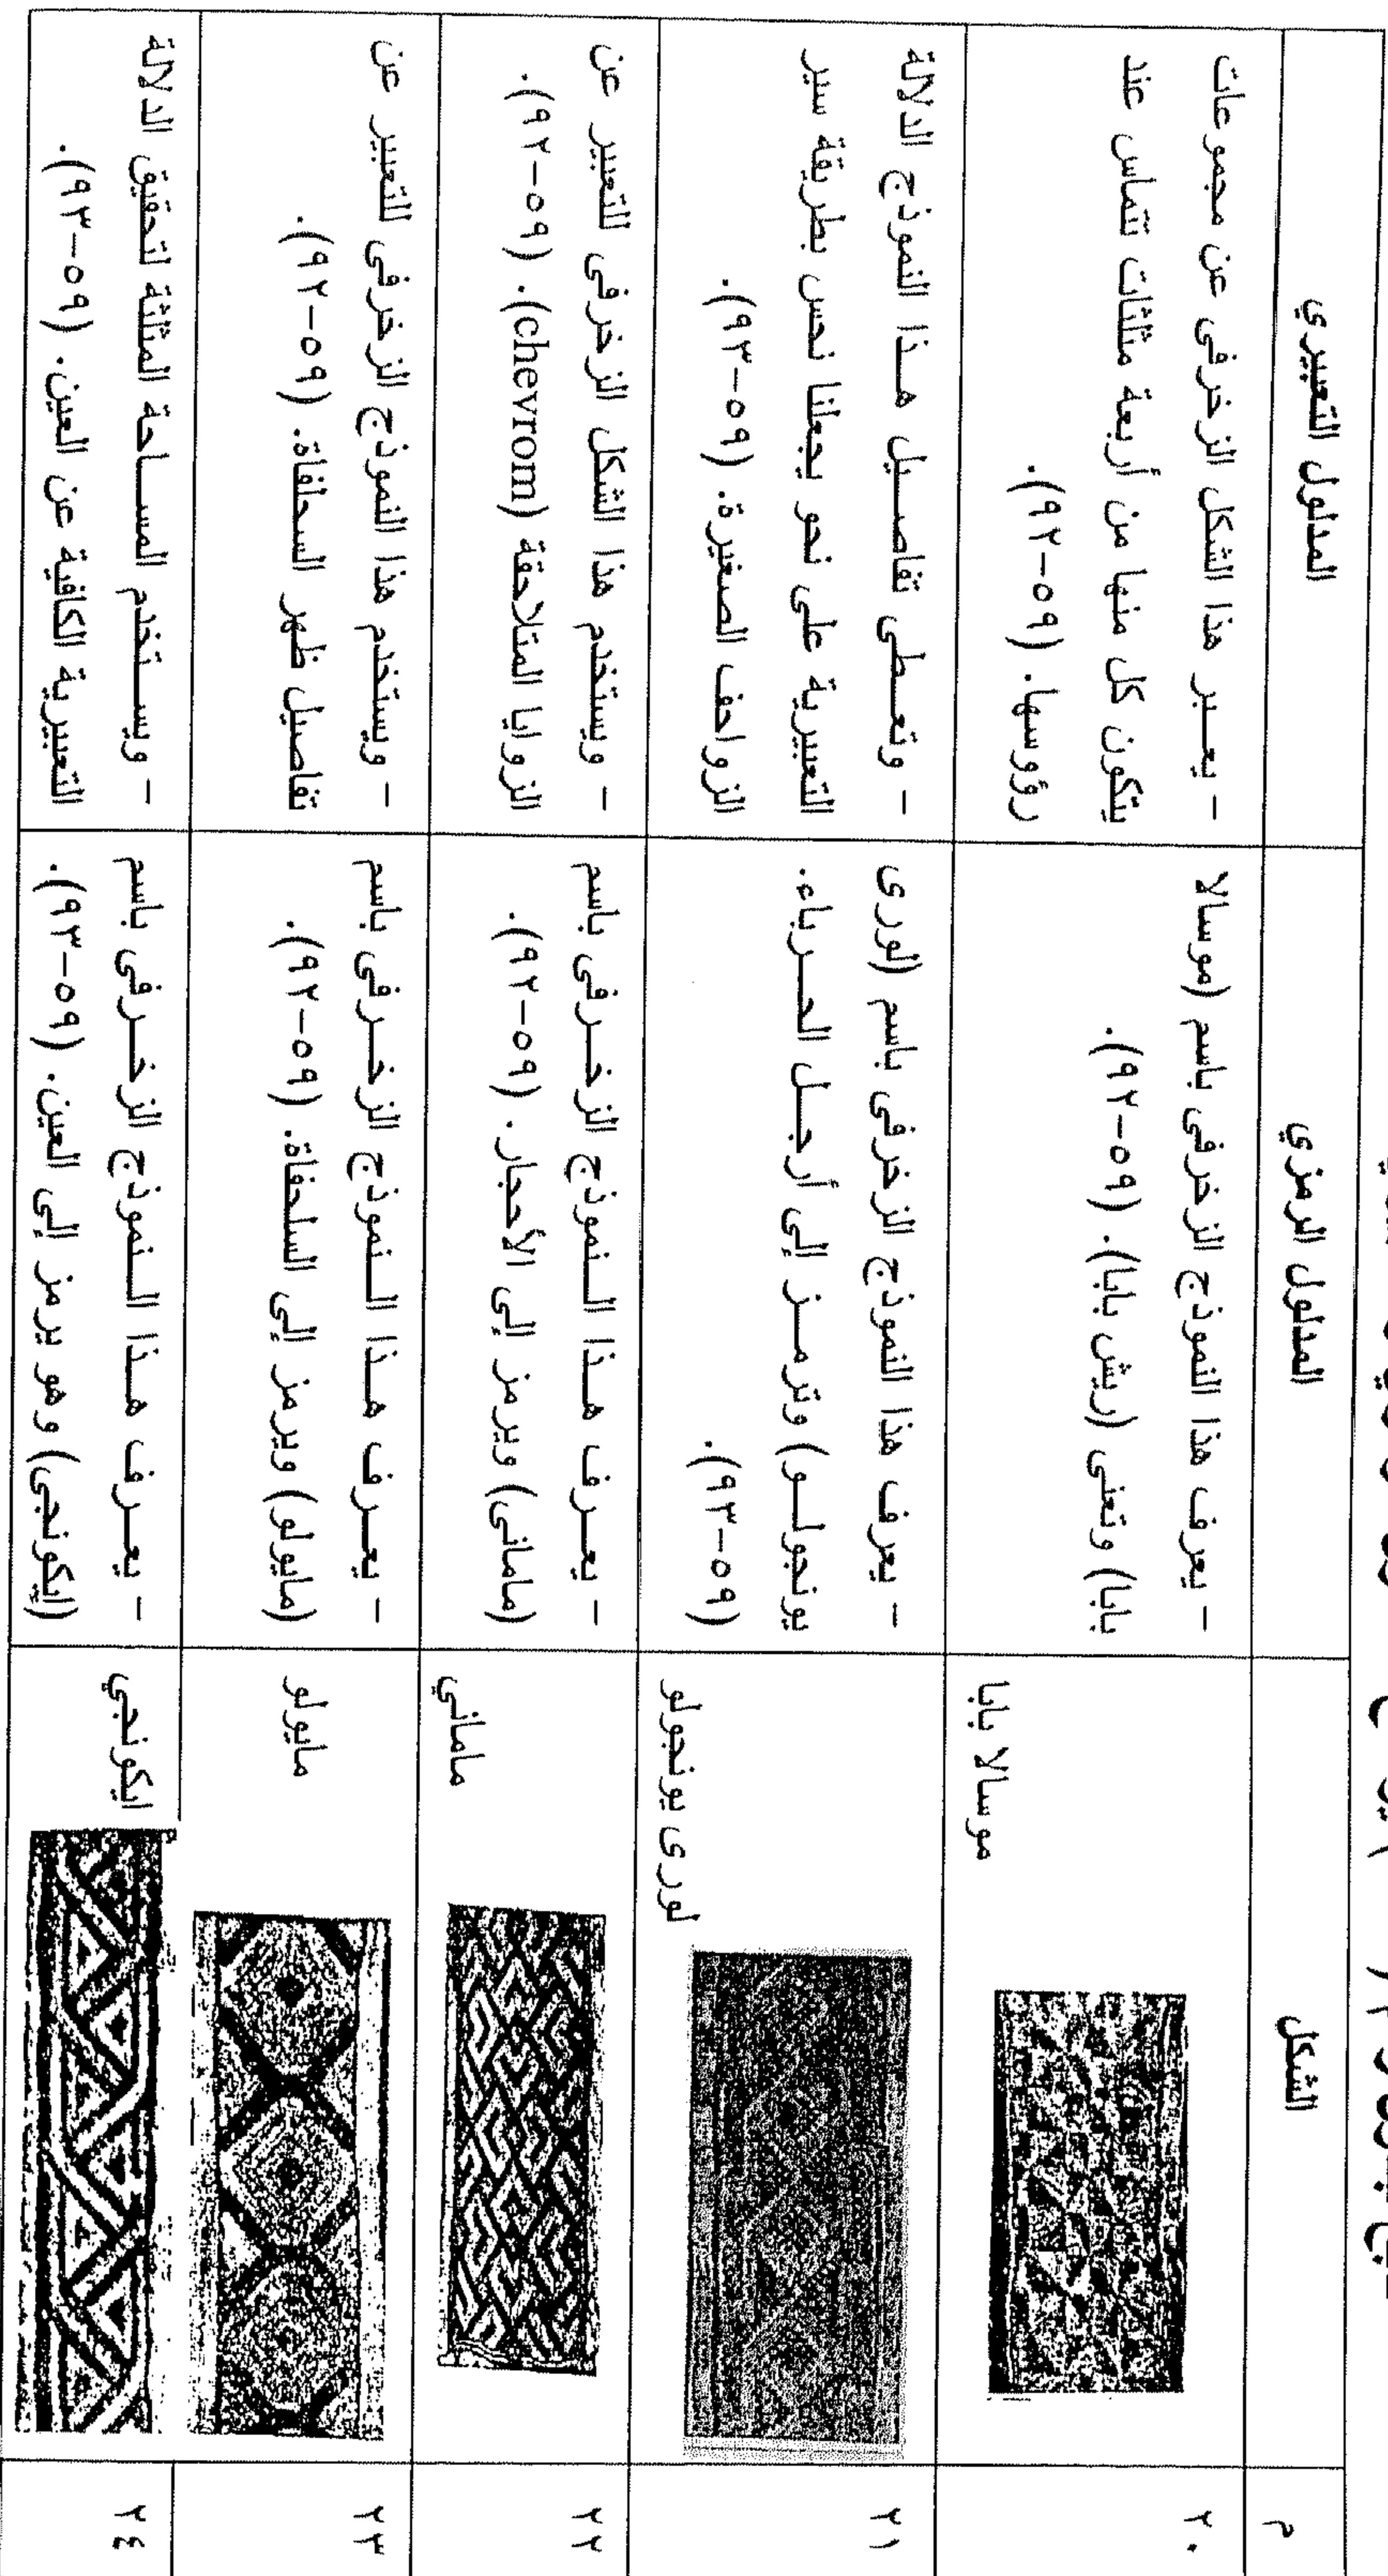 م
الشكل
المدلول الرمزي
المدلول التعبيري
٢٠
موسالا بابا
- يعرف هذا النموذج الزخرفى باسم (موسالا
بابا) وتعنى (ريش بابا). (٥٩-٩٢).
- يعـــبر هذا الشكل الزخرفى عن مجموعات
يتكون كل منها من أربعة مثلثات تتماس عند
رؤوسها. (٥٩-٩٢).
٢١
لورى يونجولو
- يعرف هذا النموذج الزخرفى باسم (لورى
يونجولــو) وترمــز إلى أرجــل الحــرباء.
(٥٩-٩٣).
- وتعــطى تفاصــيل هــذا النموذج الدلالة
التعبيرية على نحو يجعلنا نحس بطريقة سير
الزواحف الصغيرة. (٥٩-٩٣).
٢٢
ماماني
- يعــرف هــذا الــنموذج الزخــرفى باسم
(مامانى) ويرمز إلى الأحجار. (٥٩-٩٢).
- ويستخدم هذا الشكل الزخرفى للتعبير عن
الزوايا المتلاحقة (chevrom). (٥٩-٩٢).
٢٣
مايولو
- يعــرف هــذا الــنموذج الزخــرفى باسم
(مايولو) ويرمز إلى السلحفاة. (٥٩-٩٢).
- ويستخدم هذا النموذج الزخرفى للتعبير عن
تفاصيل ظهر السحلفاة. (٥٩-٩٢).
٢٤
ايكونجي
- يعــرف هــذا الــنموذج الزخــرفى باسم
(إيكونجى) وهو يرمز إلى العين. (٥٩-٩٣).
- ويســتخدم المســاحة المثلثة لتحقيق الدلالة
التعبيرية الكافية عن العين. (٥٩-٩٣).